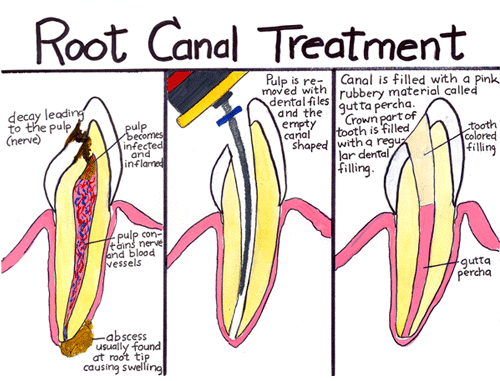 Root Canal Treatment
decay leading
to the pulp
(nerve)
pulp
becomes
infected
and
inflamed
pulp con-
tains nerve
and blood
vessels
abscess
usually found
at root tip
causing swelling
Pulp is re-
moved with
dental files
and the
empty
canal
shaped
Canal is filled with a pink
rubbery material called
gutta percha.
Crown part of
tooth is filled
with a regu-
lar dental
filling.
tooth
colored
filling
gutta
percha